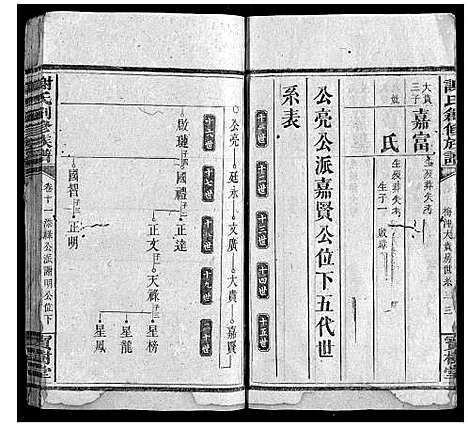 謝氏創修族譜
梅津大貴房世系
寶樹堂
大貴三子
嘉富
生歿葬失考
氏
生歿葬失考
生子一
啟璋
公亮公派嘉賢公位下五代世
系表
十一世
十二世
十三世
十四世
十五世
公亮
廷永
文廣
大貴
嘉賢
十六世
十七世
十八世
十九世
二十世
啟璉
國禮
正達
正文
天祿
星榜
星龍
星鳳
國智
正明
謝氏創修族譜
卷十一
派謝明公位下
寶樹堂